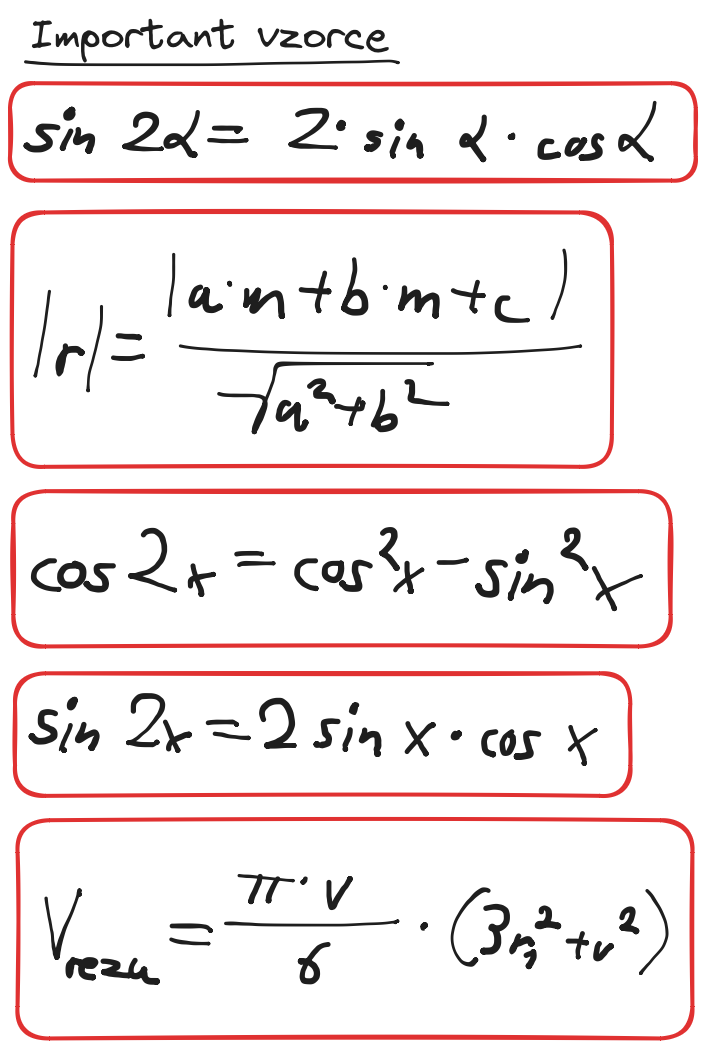 Important vzorce
sin 2α = 2 · sin α · cos α
|r| = |a·m + b·m + c| / √a² + b²
cos 2x = cos²x - sin²x
sin 2x = 2 sin x · cos x
V rezu = π · v / 6 · (3r₁² + v²)